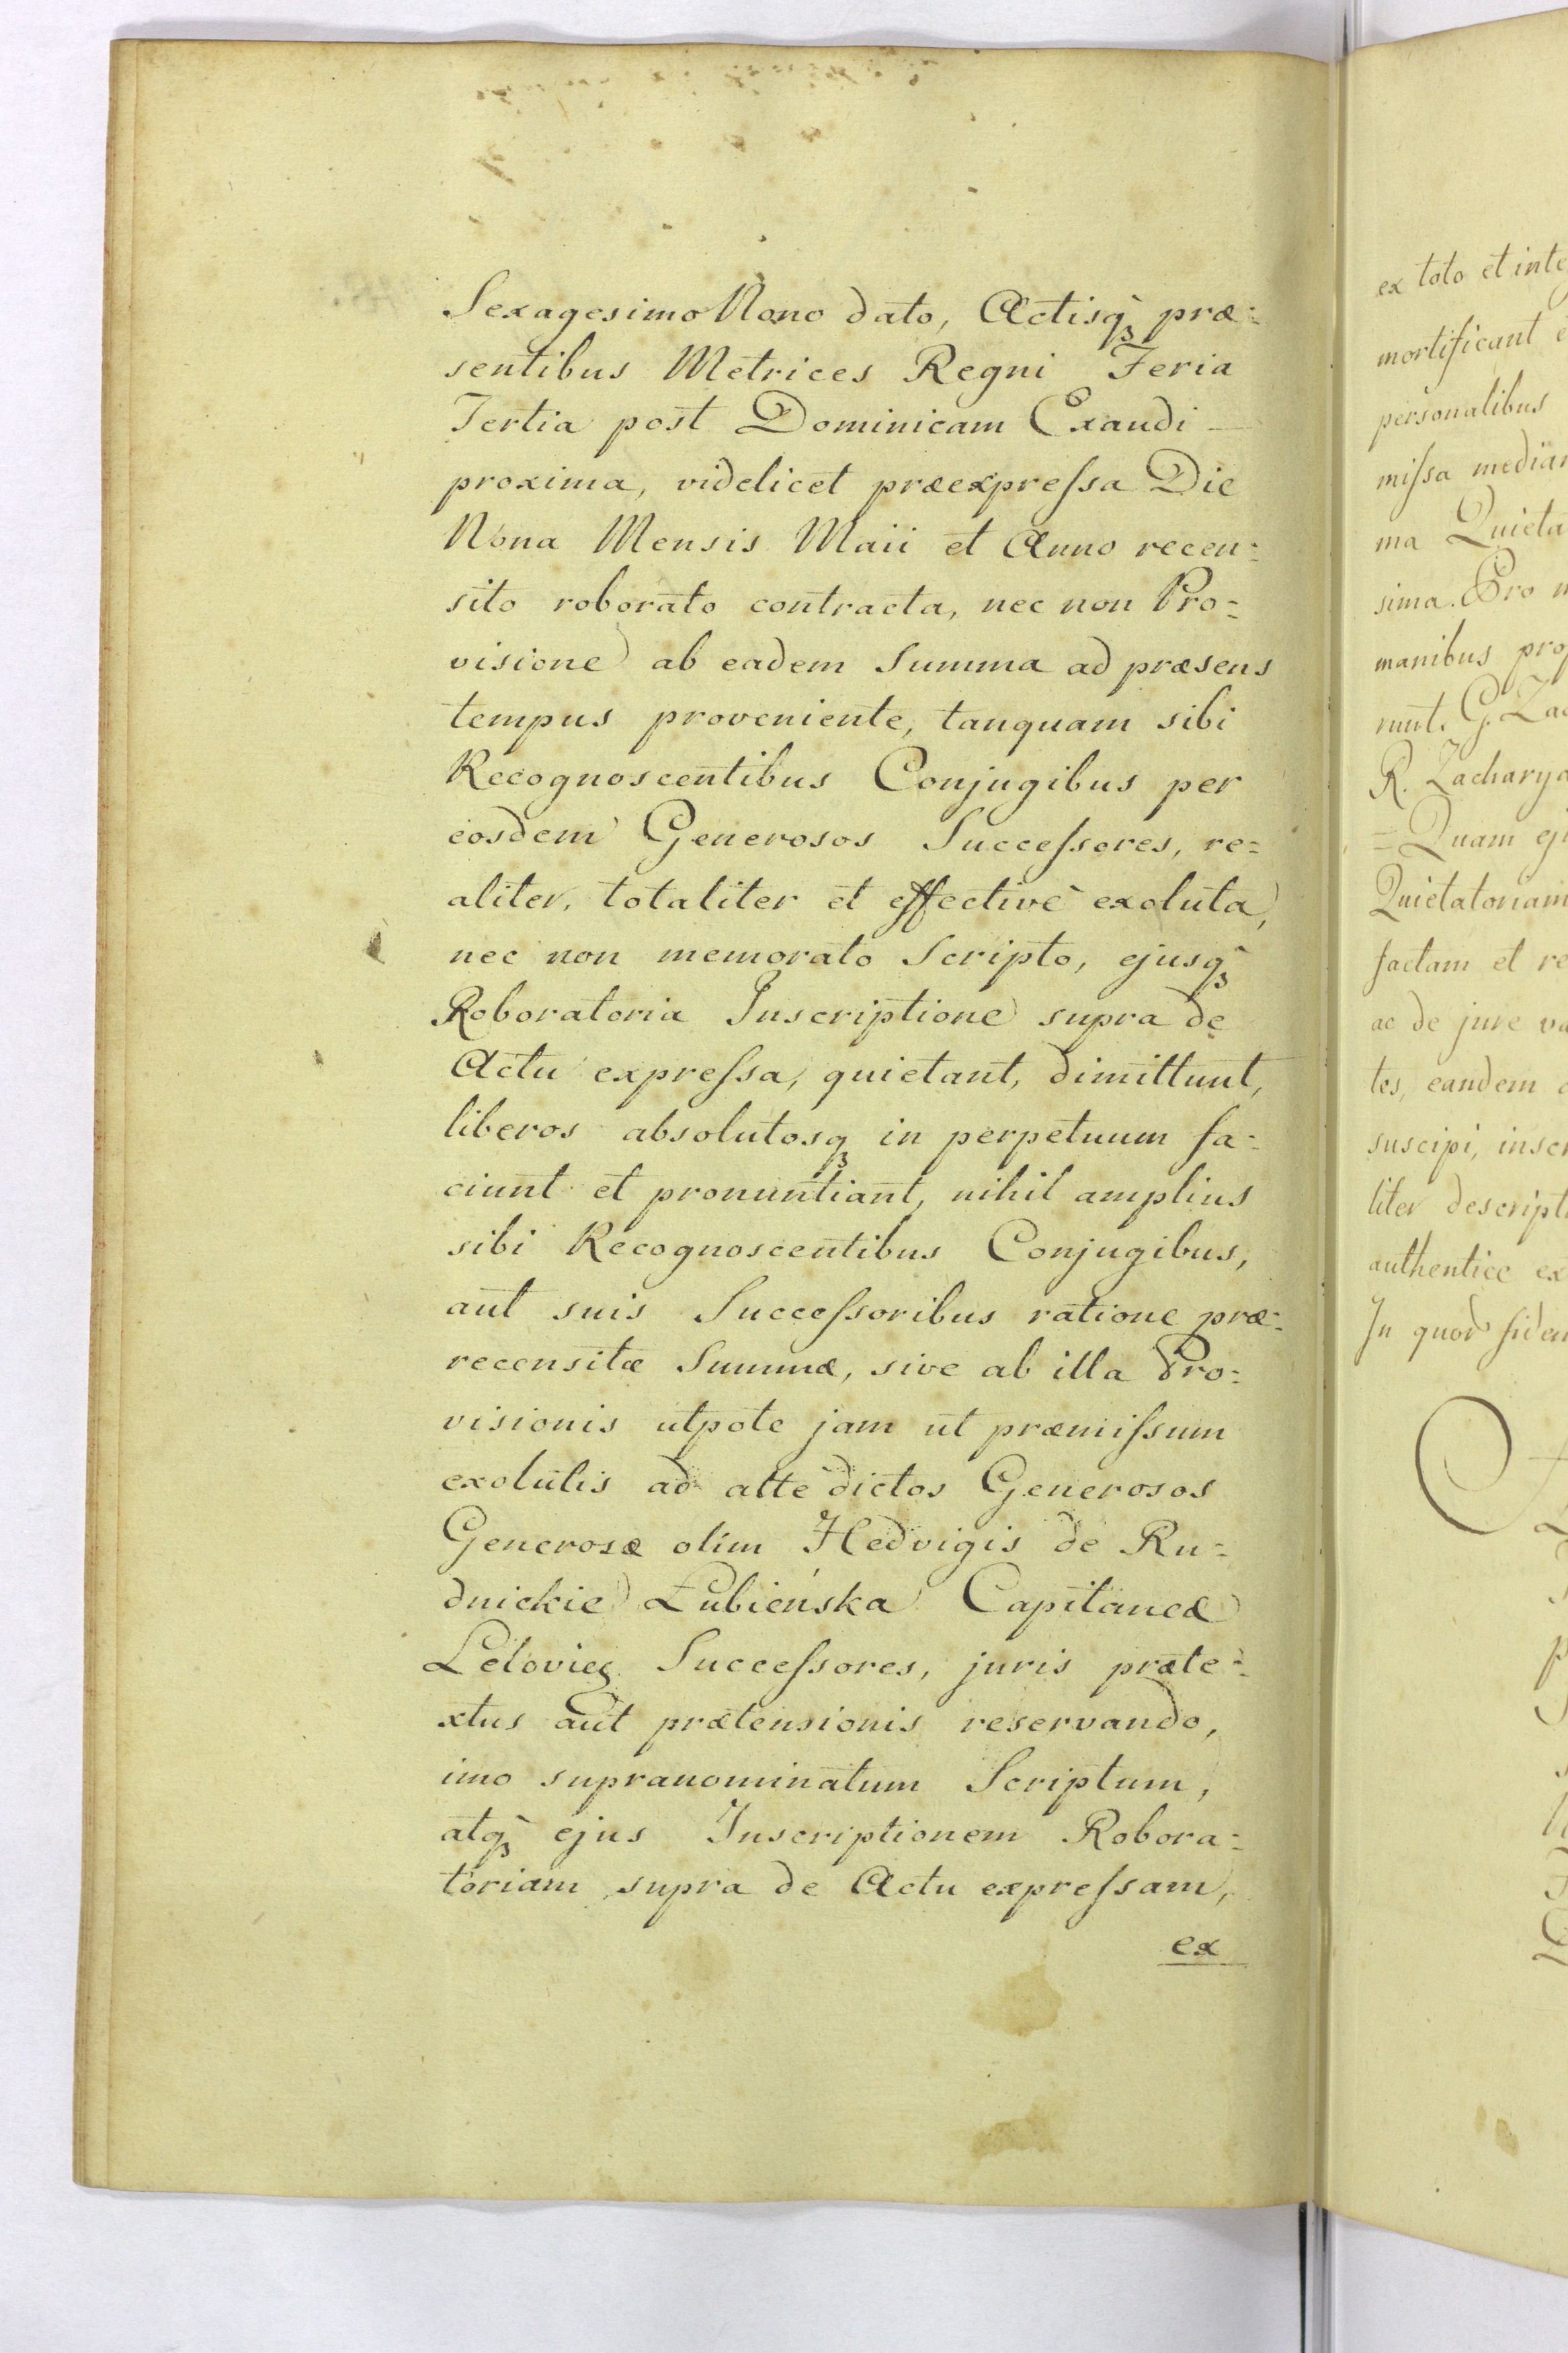 Sexagesimo Nono dato, Actisq́ præ=
sentibus Metrices Regni Feria
Tertia post Dominicam Exaudi —
proxima, videlicet præexpreſsa Die
Nona Mensis Maii et Anno recen=
sito roborato contracta, nec non Pro=
visione ab eadem Summa ad præsens
tempus proveniente, tanquam sibi
Recognoscentibus Conjugibus per
eosdem Generosos Succeſsores, re=
aliter, totaliter et effectivè exoluta,
nec non memorato Scripto, ejusq́
Roboratoria Inscriptione supra de
Actu expreſsa, quietant, dimittunt,
liberos absolutosq in perpetuum fa=
ciunt et pronuntiant, nihil amplius
sibi Recognoscentibus Conjugibus,
aut suis Succeſsoribus ratione præ=
recensitæ Summæ, sive ab illa Pro=
visionis utpote jam ut præmiſsum
exolutis ad altè dictos Generosos
Generosæ olim Hedvigis de Ru=
dnickie Łubieńska Capitaneæ
Lelovieg Succeſsores, juris præte=
xtus aut prætensionis reservando,
imo supranominatum Scriptum,
atq́ ejus Inscriptionem Robora=
toriam supra de Actu expreſsam,
ex
ex toto et inte
mortificant
personalibus
miſsa median
ma Quieta
sima. Pro
manibus pro
runt. G. Zac
R. Zacharya
= Quam ej
Quietatoriam
factam et re
ac de jure va
tes, eandem
suscipi, inscr
liter descript
authentice ex
In quor fidem